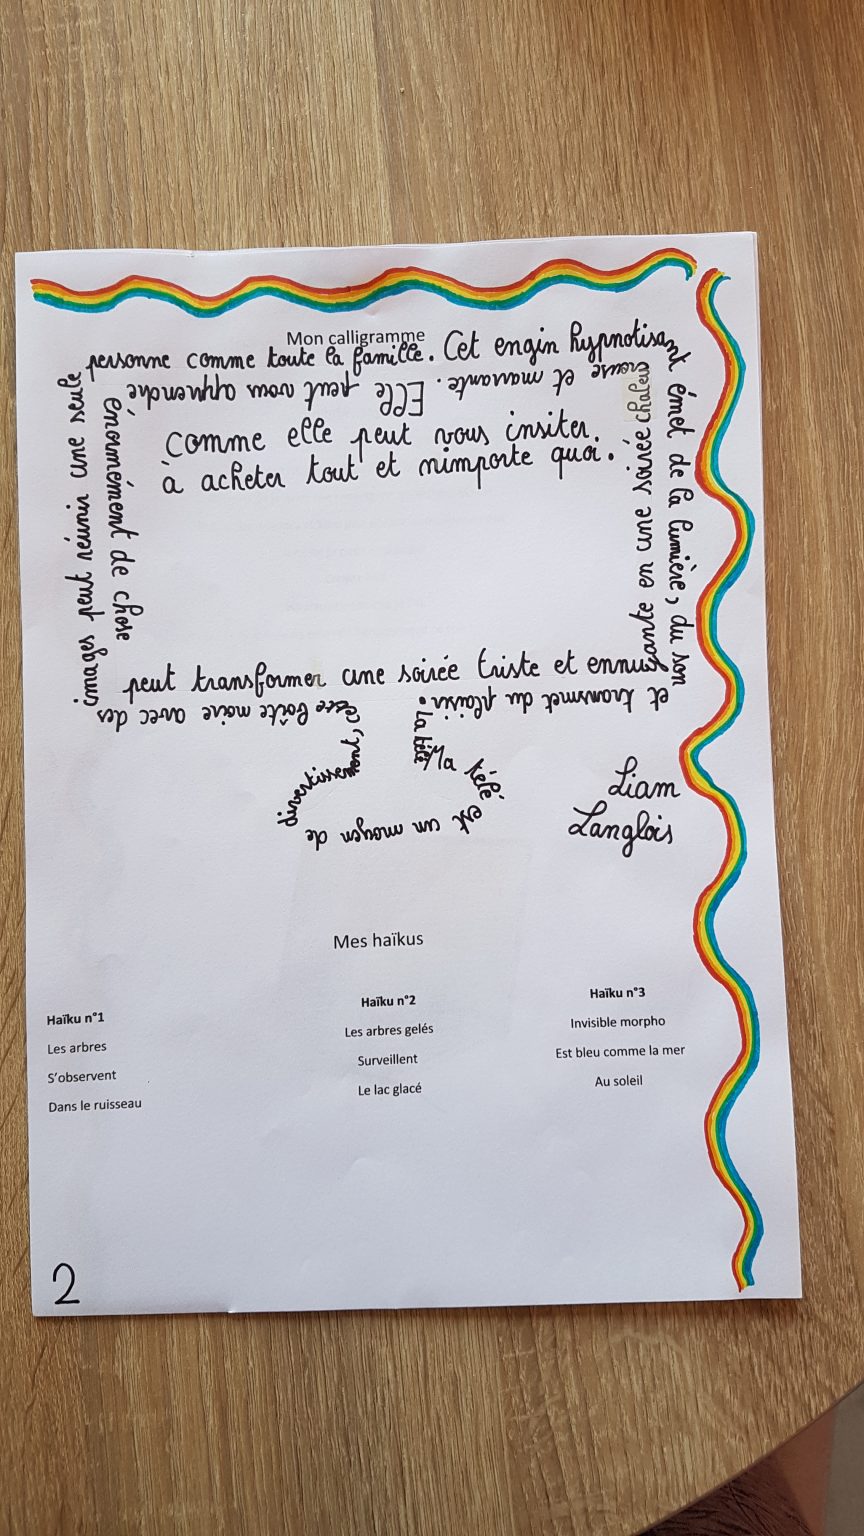 Mon calligramme
Ma télé
est un moyen de
divertissement,
cette boîte noire avec des
images peut réunir une seule
personne comme toute la famille. Cet engin hypnotisant
émet de la lumière, du son
et transmet du plaisir.
La télé
peut transformer une soirée triste et ennuyante
en une soirée chaleu
reuse et marrante. Elle peut vous apprendre
énormément de chose
comme elle peut vous insiter
à acheter tout et nimporte quoi.
Liam
Langlois
Mes haïkus
Haïku n°1
Les arbres
S'observent
Dans le ruisseau
Haïku n°2
Les arbres gelés
Surveillent
Le lac glacé
Haïku n°3
Invisible morpho
Est bleu comme la mer
Au soleil
2